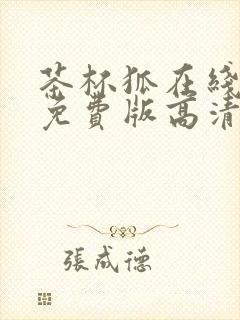 茶杯狐在线
免费版高清
張成德